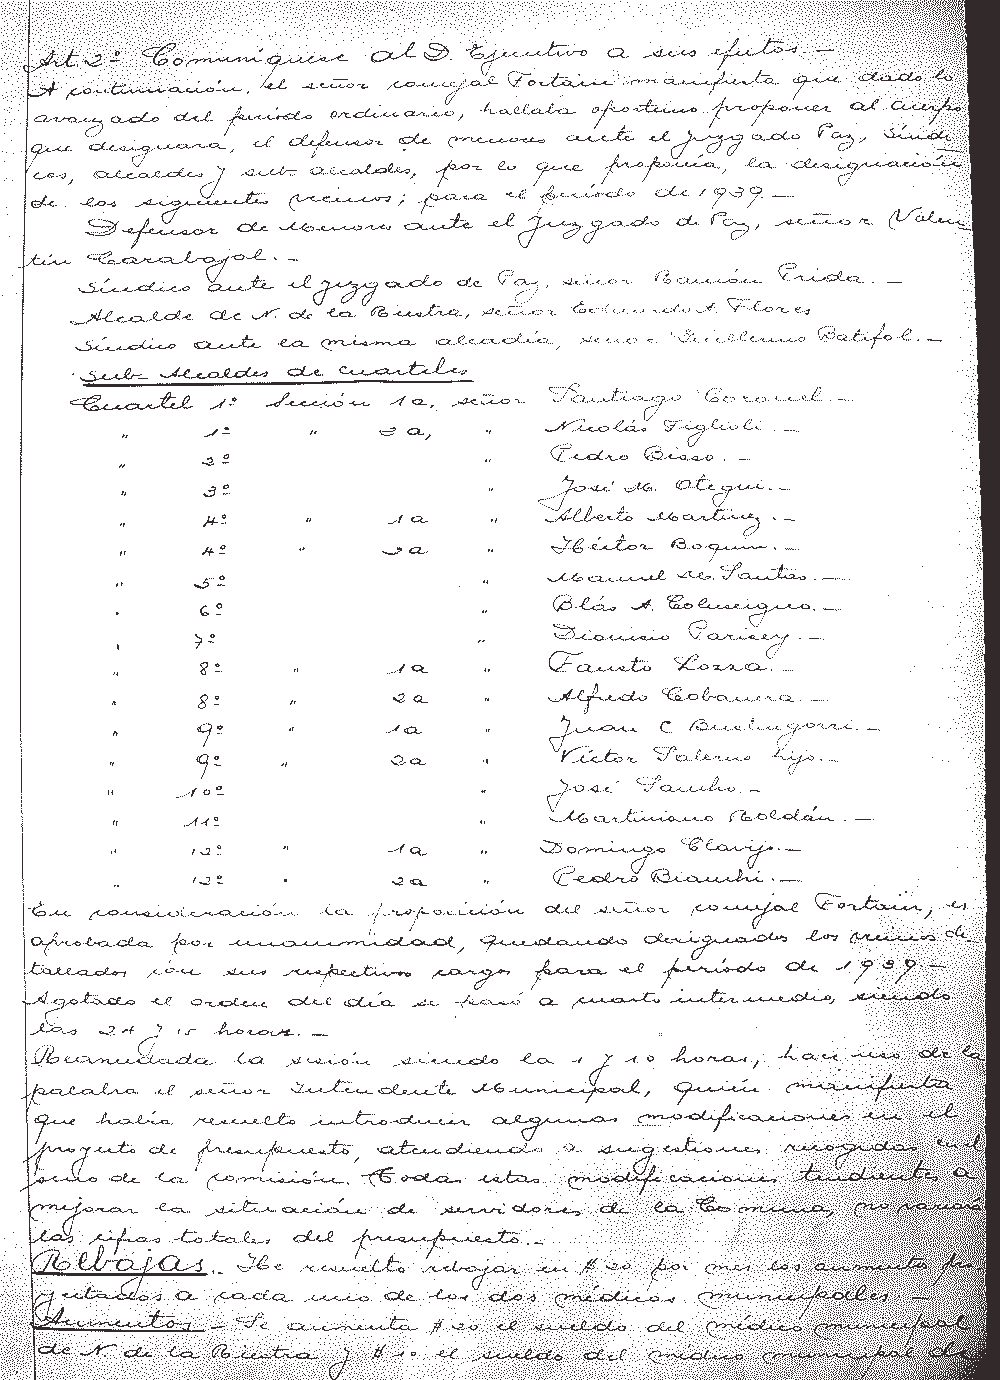 Art. 2º Comuníquese al D. Ejecutivo a sus efectos.—
A continuación, el señor concejal Fortain manifiesta que dado lo
avanzado del período ordinario, hallaba oportuno proponer al cuerpo
que designara, el defensor de menores ante el Juzgado Paz, Síndi-
cos, alcaldes y sub-alcaldes, por lo que proponía, la designación
de los siguientes vecinos; para el período de 1939.—
Defensor de Menores ante el Juzgado de Paz, señor Valen-
tín Carabajal.—
Síndico ante el Juzgado de Paz, señor Ramón Prida.—
Alcalde de N. de la Riestra, señor Eduardo A. Flores
Síndico ante la misma alcadía, señor Guillermo Batifol.—
Sub-Alcaldes de cuarteles
Cuartel 1º Sección 1a, señor Santiago Coronel.—
" 1º " 2a, " Nicolás Figlioli.—
" 2º " Pedro Bisso.—
" 3º " José M. Otegui.—
" 4º " 1a " Alberto Martinez.—
" 4º " 2a " Héctor Boquin.—
" 5º " Manuel dos Santos.—
" 6º " Blás A.
" 7º " Dionisio Parisey.—
" 8º " 1a " Fausto Lossa.—
" 8º " 2a " Alfredo Cobanera.—
" 9º " 1a " Juan C
" 9º " 2a " Víctor Salerno hijo.—
" 10º " José Sancho.—
" 11º " Martiniano Roldán.—
" 12º " 1a " Domingo Clavijo.—
" 12º " 2a " Pedro Bianchi.—
En consideración la proposición del señor concejal Fortain, es
aprobada por unanimidad, quedando designados los vecinos de-
tallados con sus respectivos cargos para el período de 1939—
Agotado el orden del día se pasó a cuarto intermedio, siendo
las 24 y 15 horas.—
Reanudada la sesión siendo la 1 y 10 horas, hace uso de la
palabra el señor Intendente Municipal, quién manifiesta
que había resuelto introducir algunas modificaciones en el
proyecto de presupuesto, atendiendo a sugestiones recogidas en el
seno de la comisión. Todas estas modificaciones tendientes a
mejorar la situación de servidores de la Comuna, no variará
las cifras totales del presupuesto.—
Rebajas. He resuelto rebajar en $ 20 por mes los aumentos pro-
yectados a cada uno de los dos médicos municipales—
Aumentos— Se aumenta $ 20 el sueldo del médico municipal
de N de la Riestra y $ 10 el sueldo del médico municipal de